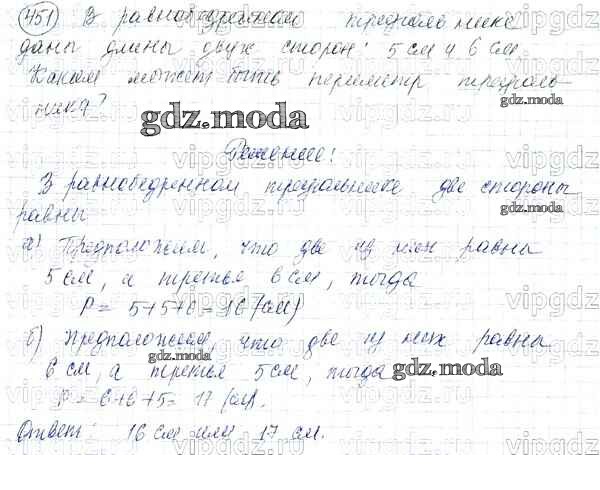 451 В равнобедренном треугольнике
даны длины двух сторон: 5 см и 6 см.
Каким может быть периметр треуголь-
ника?
gdz.moda
Решение:
В равнобедренном треугольнике две стороны
gdz.moda
равны
а) Предположим, что две из них равны
5 см, а третья 6 см, тогда
P = 5+5+6 = 16 (см)
б) Предположим, что две из них равны
gdz.moda
6 см, а третья 5 см, тогда
gdz.moda
P = 6+6+5 = 17 (см).
Ответ: 16 см или 17 см.
gdz.moda